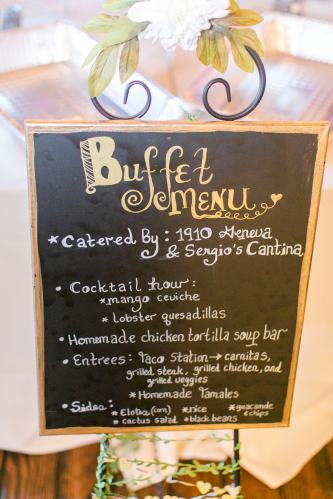 Buffet
Menu
*Catered By: 1910 Geneva
& Sergio's Cantina
• Cocktail hour:
*mango ceviche
* lobster quesadillas
• Homemade chicken tortilla soup bar
• Entrees: Taco Station → carnitas,
grilled steak, grilled chicken, and
grilled veggies
*Homemade Tamales
• Sides: * Elotes (corn) *rice *guacamole
* cactus salad *black beans & chips